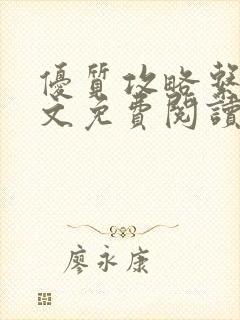 優質攻略繫
文免費閱讀
廖永康